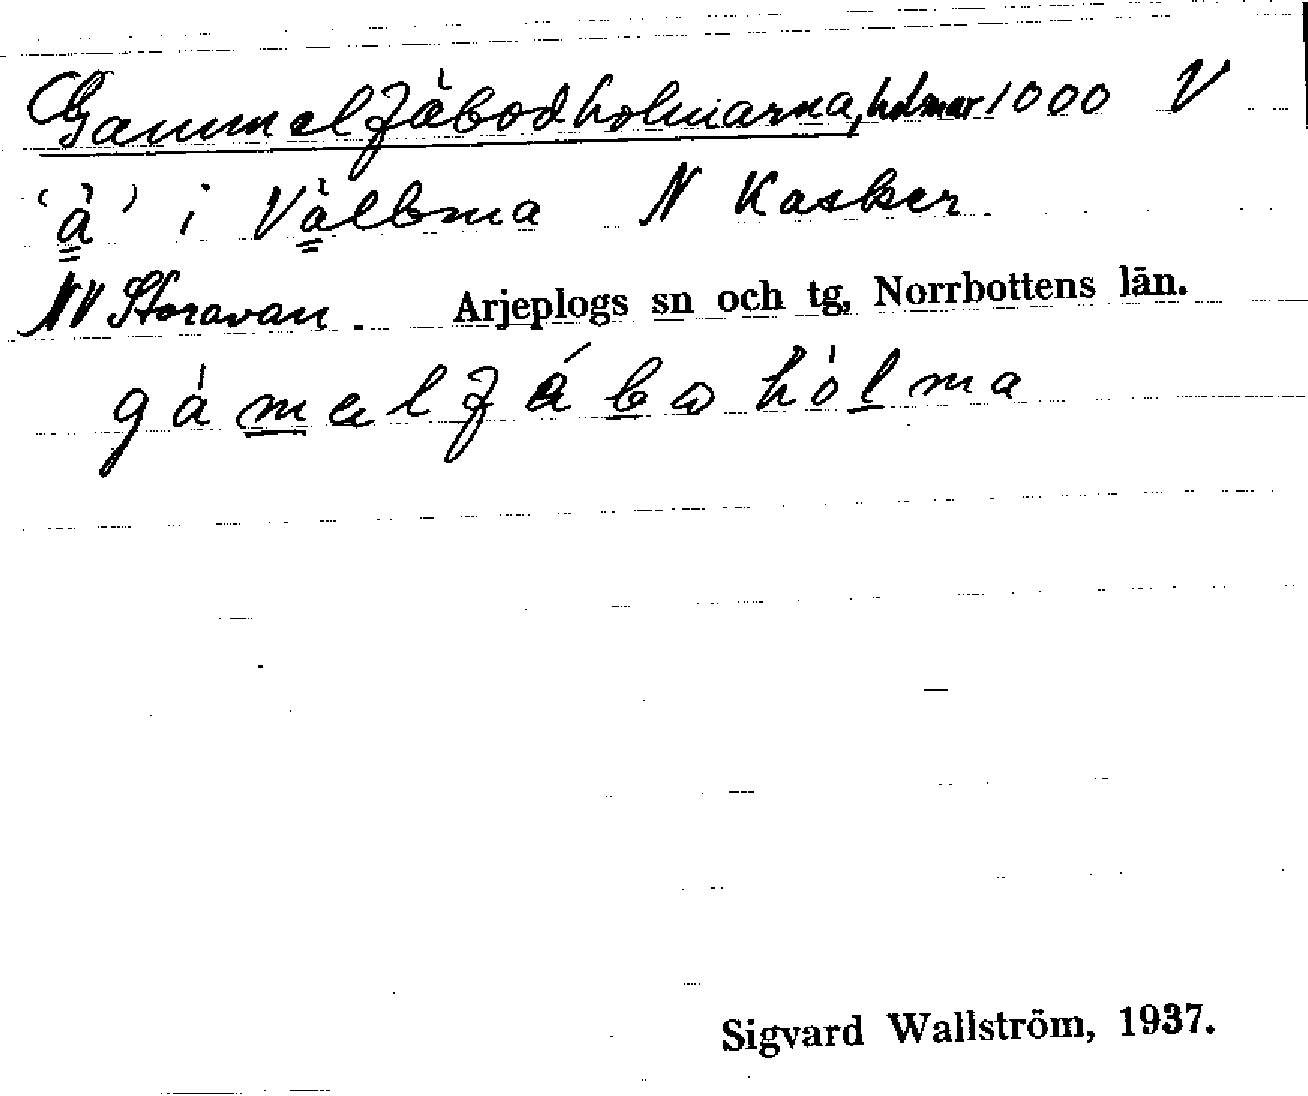 Gammelfäbodholmarna, holmar 1000 V
'à' i Vàlbma N Kasker
NV Storavan. Arjeplogs sn och tg, Norrbottens län.
gàmelfábo hòlma
Sigvard Wallström, 1937.